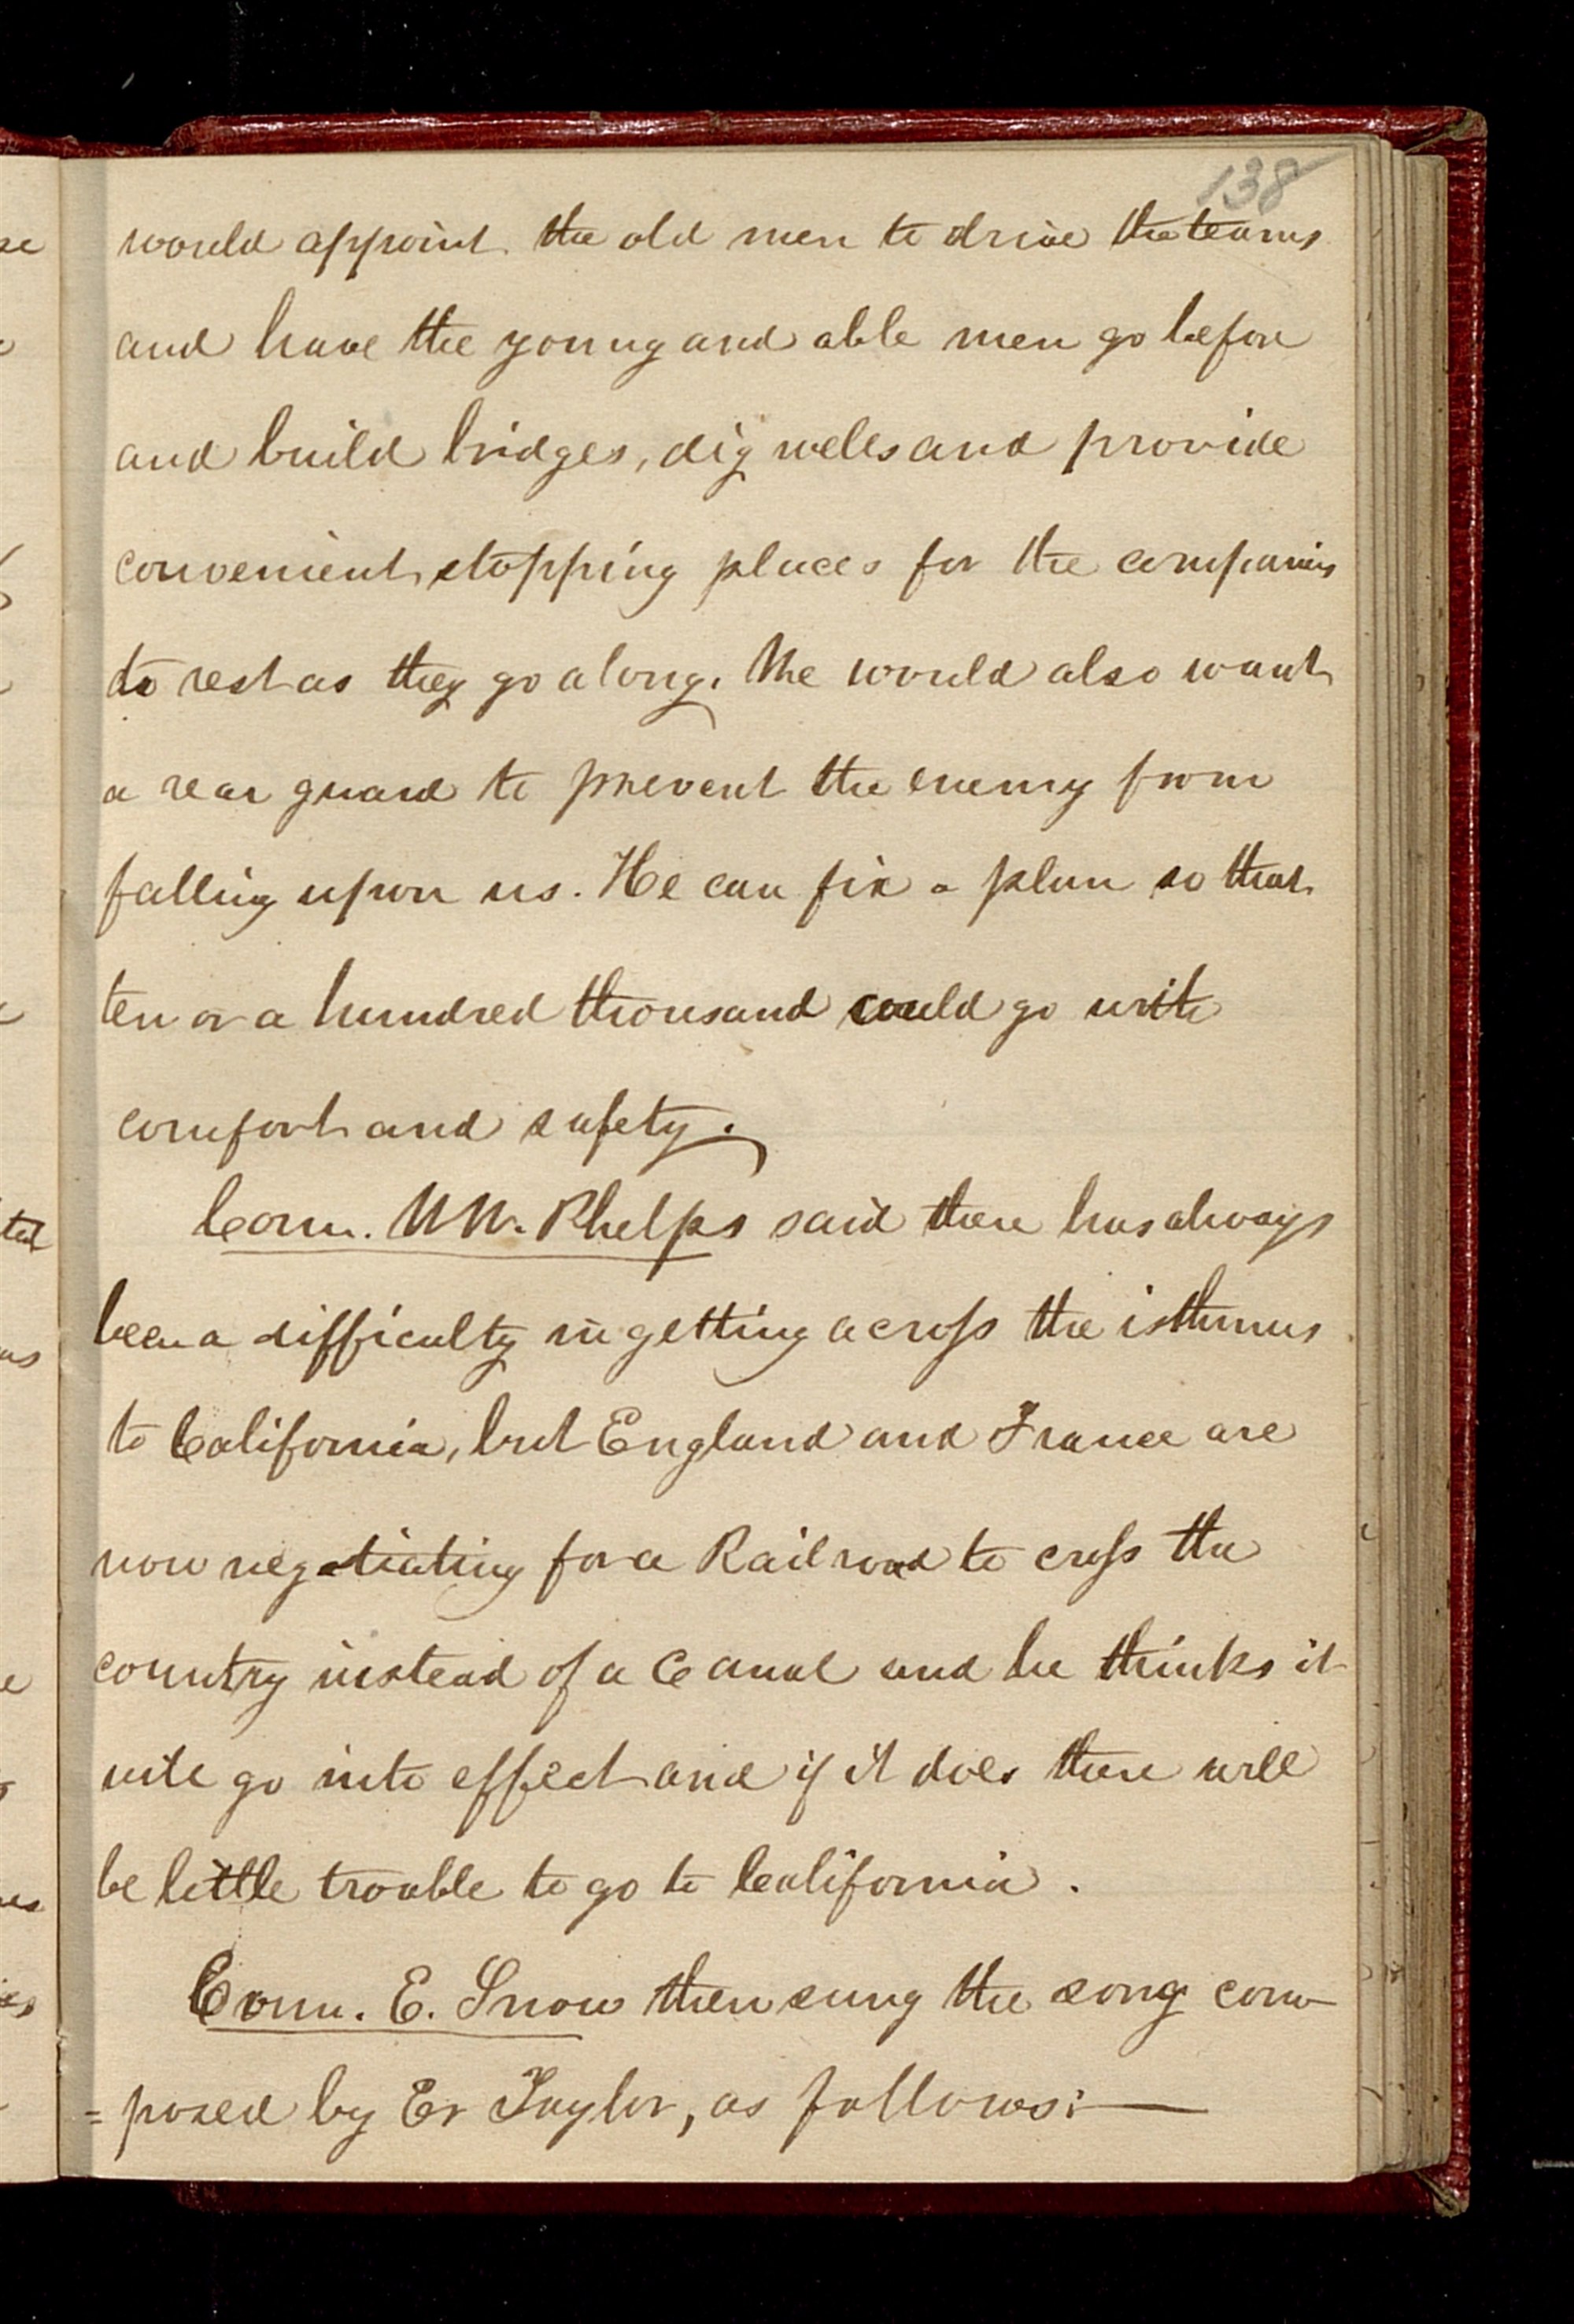 138
would appoint the old men to drive the teams
and have the young and able men go before
and build bridges, dig wells and provide
convenient stopping places for the companies
to rest as they go along. We would also want
a rear guard to prevent the enemy from
falling upon us. He can fix a plan so that
ten or a hundred thousand could go with
comfort and safety.
Coun. W W. Phelps said there has always
been a difficulty in getting across the isthmus
to California, but England and France are
now negotiating for a Railroad to cross the
country instead of a Canal and he thinks it
will go into effect and if it does there will
be little trouble to go to California.
Coun. E. Snow then sung the song com-
=posed by Er Taylor, as follows:—